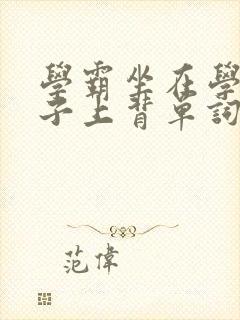 學霸坐在學
子上背單詞
范偉